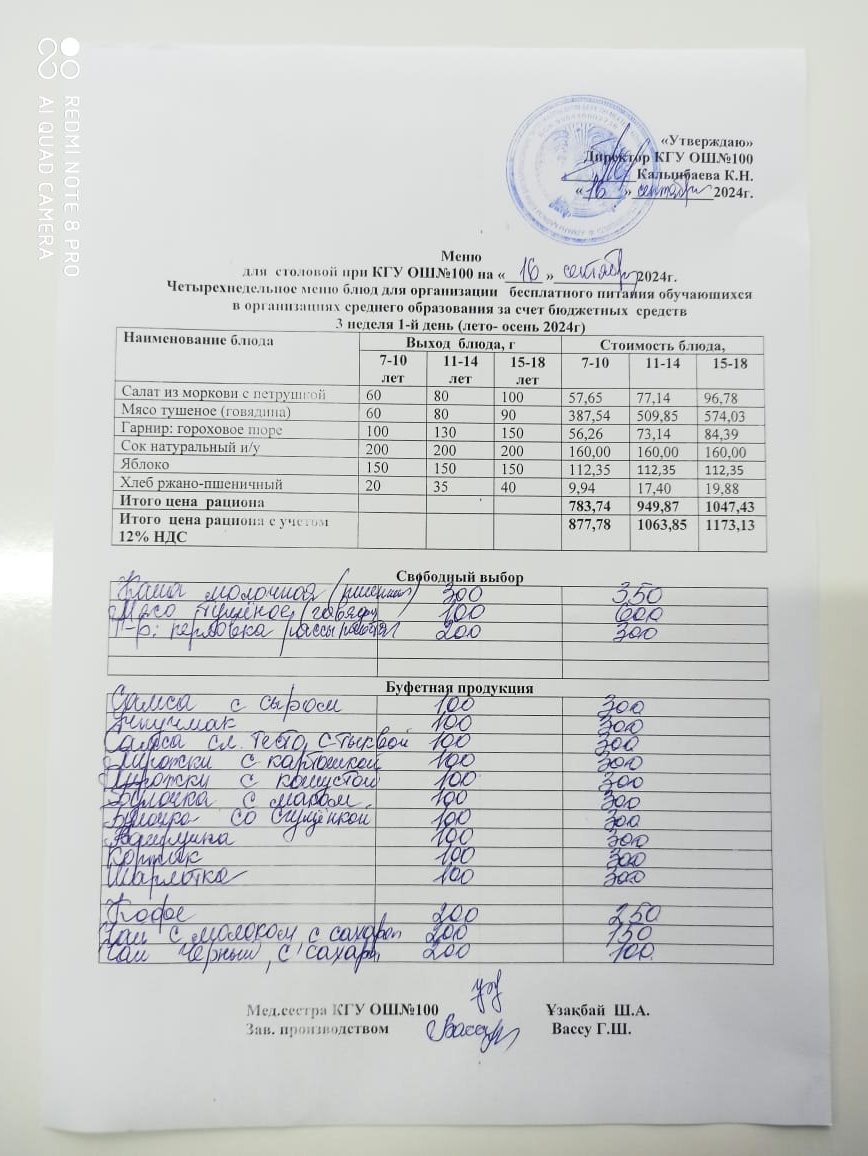 REDMI NOTE 8 PRO
AI QUAD CAMERA
«Утверждаю»
Директор КГУ ОШ№100
Калынбаева К.Н.
«16» сентября 2024г.
Меню
для столовой при КГУ ОШ№100 на «16» сентября 2024г.
Четырехнедельное меню блюд для организации бесплатного питания обучающихся
в организациях среднего образования за счет бюджетных средств
3 неделя 1-й день (лето- осень 2024г)
Наименование блюда Выход блюда, г Стоимость блюда,
7-10 лет 11-14 лет 15-18 лет 7-10 11-14 15-18
Салат из моркови с петрушкой 60 80 100 57,65 77,14 96,78
Мясо тушеное (говядина) 60 80 90 387,54 509,85 574,03
Гарнир: гороховое пюре 100 130 150 56,26 73,14 84,39
Сок натуральный и/у 200 200 200 160,00 160,00 160,00
Яблоко 150 150 150 112,35 112,35 112,35
Хлеб ржано-пшеничный 20 35 40 9,94 17,40 19,88
Итого цена рациона 783,74 949,87 1047,43
Итого цена рациона с учетом 877,78 1063,85 1173,13
12% НДС
Свободный выбор
Каша молочная 300 350
Мясо тушеное 100 600
Г-р: перловка рассыпчатая 200 300
Буфетная продукция
Самса с сыром 100 300
100 300
Самса сл. тесто с тыквой 100 300
Пирожки с картошкой 100 300
Пирожки с капустой 100 300
Булочка с маком 100 300
Булочка со сгущенкой 100 300
100 300
100 300
Шарлотка 100 300
Кофе 200 250
Чай с молоком с сахаром 200 150
Чай черный, с сахаром 200 100
Мед.сестра КГУ ОШ№100 Ұзақбай Ш.А.
Зав. производством Вассу Г.Ш.